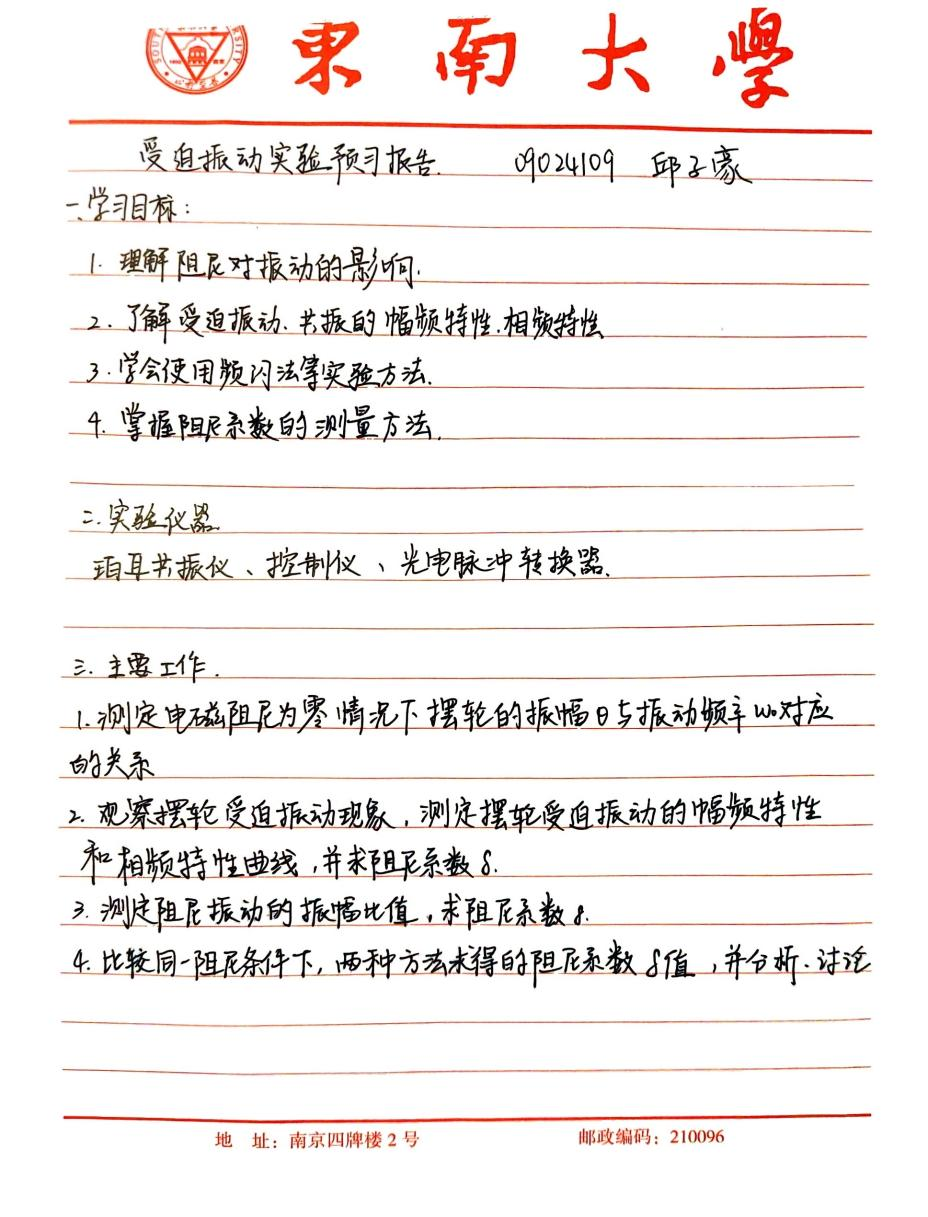 東南大學
受迫振动实验预习报告. 09024109 邱子豪
一、学习目标:
1. 理解阻尼对振动的影响.
2. 了解受迫振动、共振的幅频特性、相频特性
3. 学会使用频闪法等实验方法.
4. 掌握阻尼系数的测量方法.
二. 实验仪器
珀耳共振仪、控制仪、光电脉冲转换器.
三. 主要工作.
1. 测定电磁阻尼为零情况下摆轮的振幅θ与振动频率ω₀对应
的关系
2. 观察摆轮受迫振动现象,测定摆轮受迫振动的幅频特性
和相频特性曲线,并求阻尼系数δ.
3. 测定阻尼振动的振幅比值,求阻尼系数δ.
4. 比较同一阻尼条件下,两种方法求得的阻尼系数δ值,并分析、讨论
地 址:南京四牌楼 2 号 邮政编码:210096